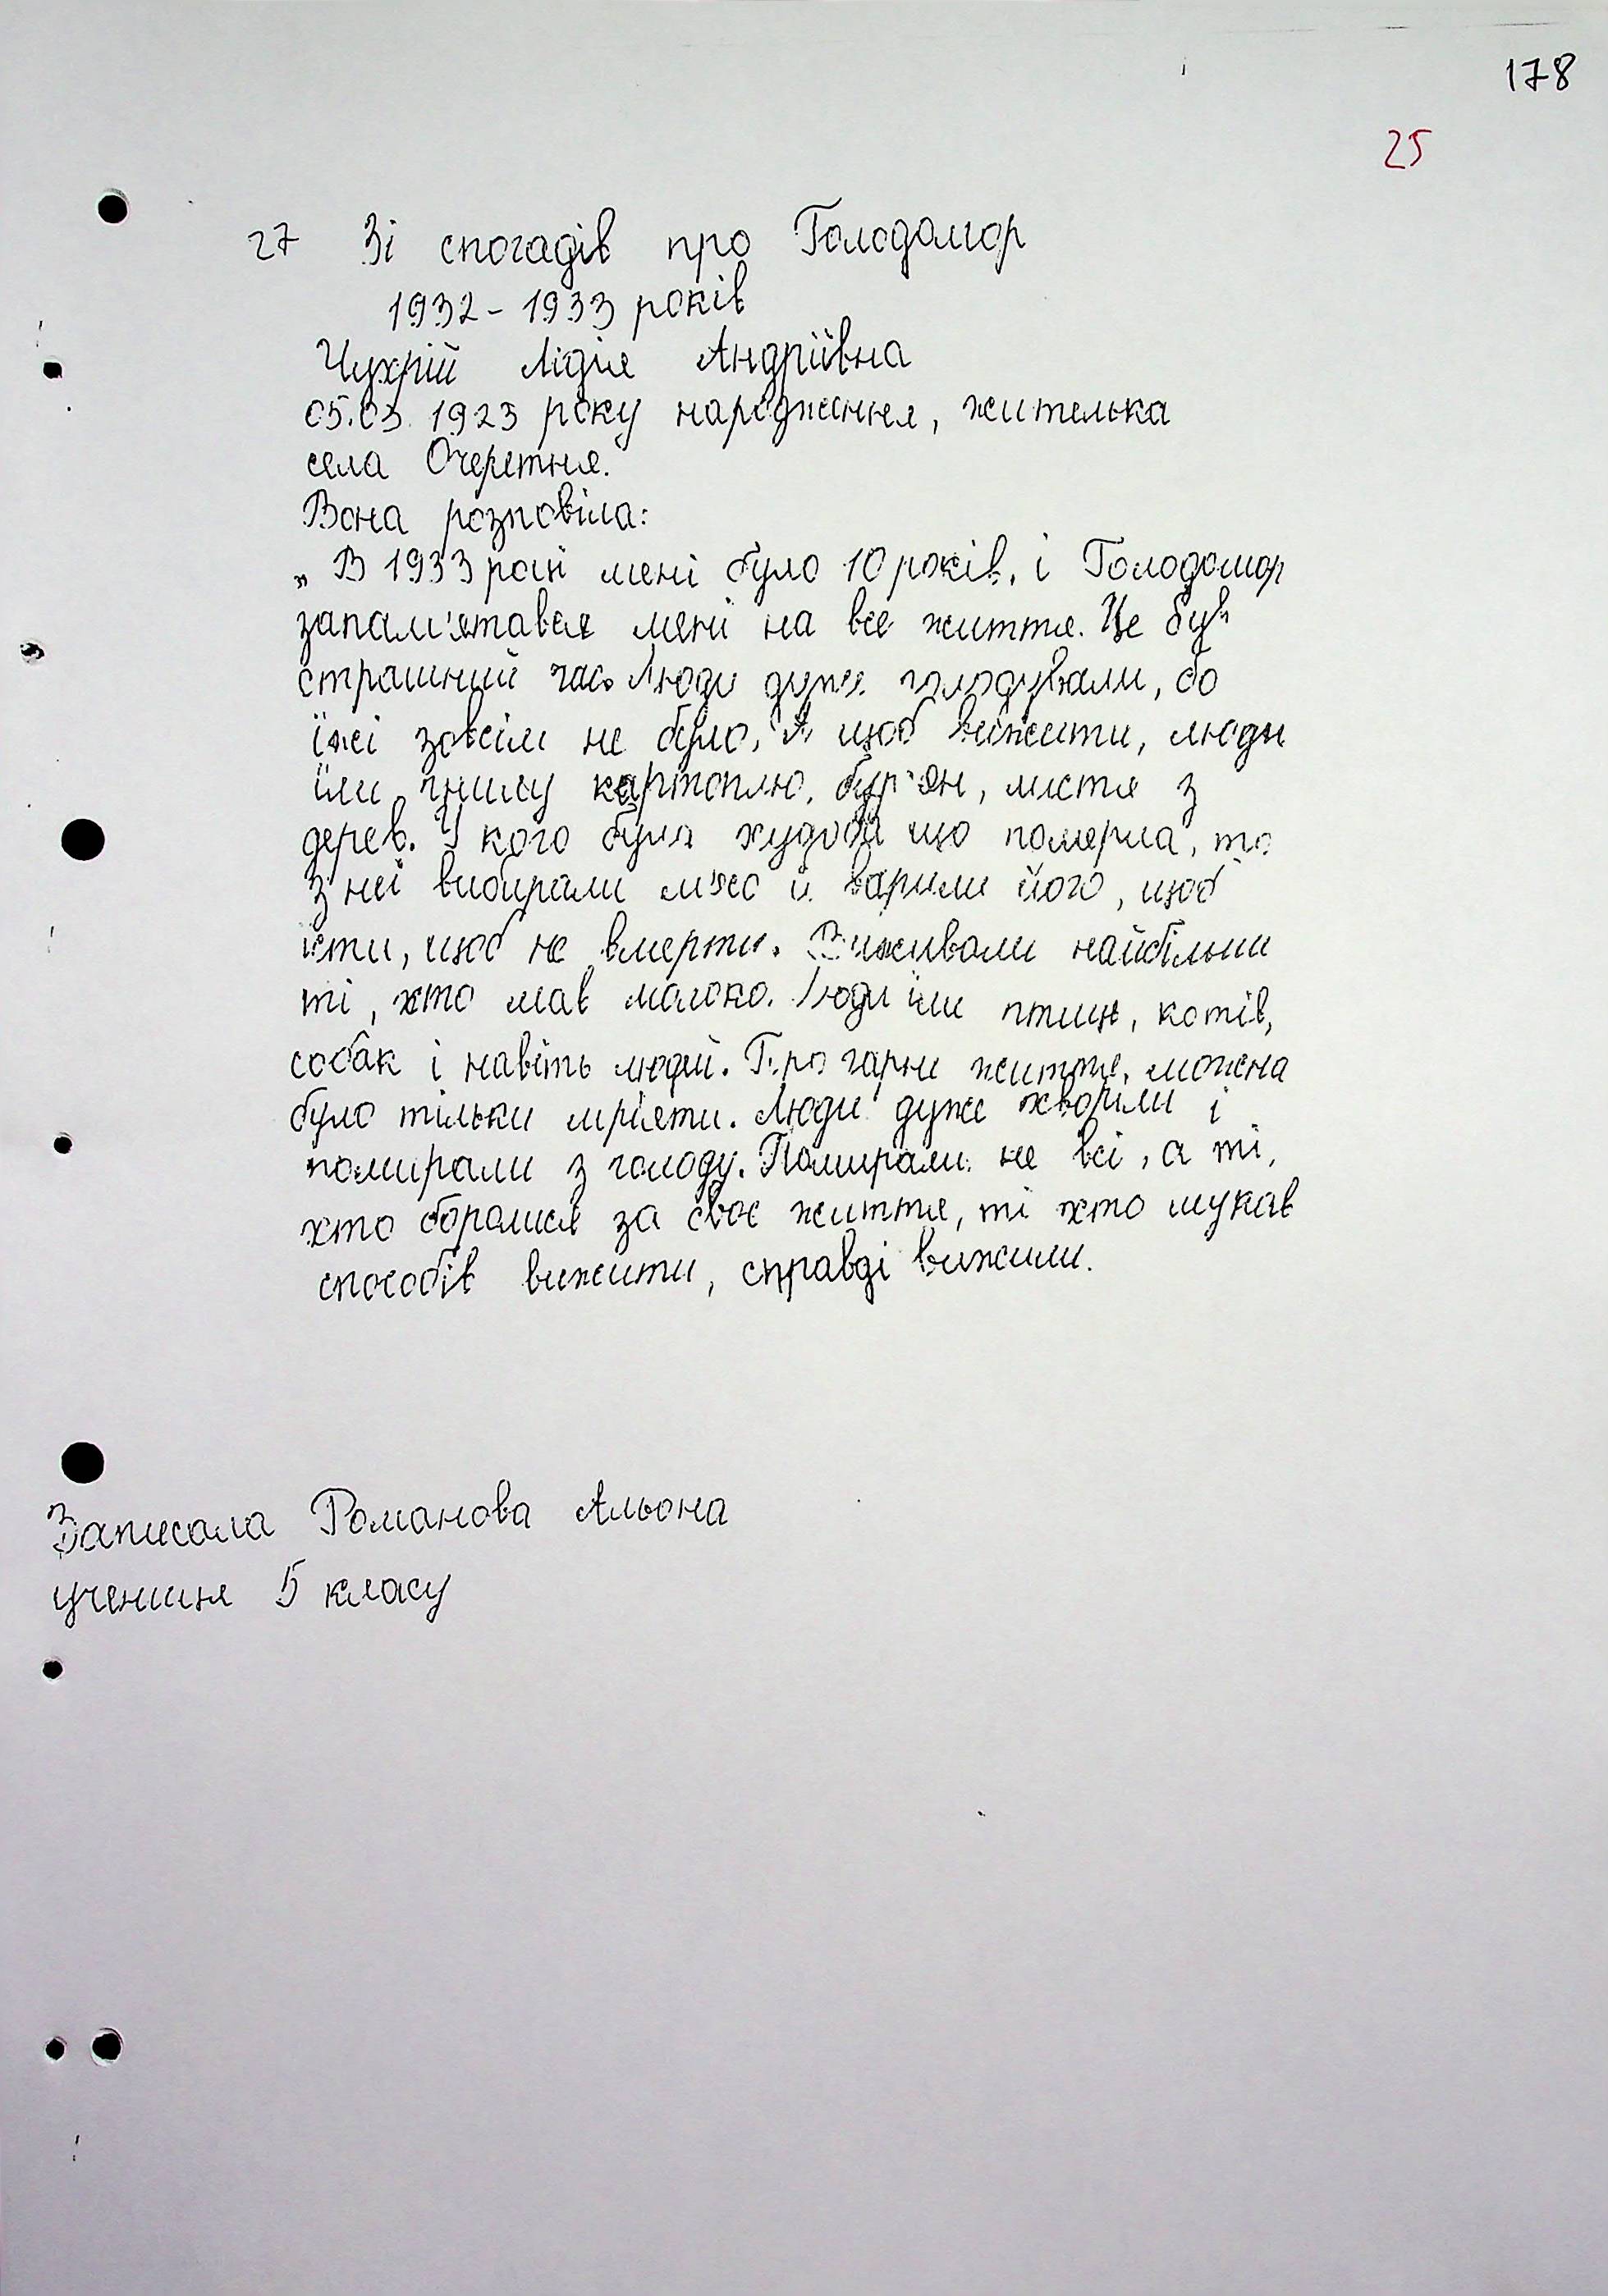 178
25
27 Зі спогадів про Голодомор
1932-1933 років
Чухрій Лідія Андріївна
05.03.1923 року народження, жителька
села Очеретня.
Вона розповіла:
„В 1933 році мені було 10 років, і Голодомор
запам'ятався мені на все життя. Це був
страшний час. Люди дуже голодували, бо
їжі зовсім не було. А щоб вижити, люди
їли гнилу картоплю, бур'ян, листя з
дерев. У кого була худоба що померла, то
з неї вибирали м'ясо й варили його, щоб
їсти, щоб не вмерти. Виживали найбільш
ті, хто мав молоко. Люди їли птиць, котів,
собак і навіть людей. Про гарне життя, можна
було тільки мріяти. Люди дуже хворіли і
помирали з голоду. Помирали не всі, а ті,
хто боролися за своє життя, ті хто шукав
способів вижити, справді вижили.
Записала Романова Альона
учениця 5 класу